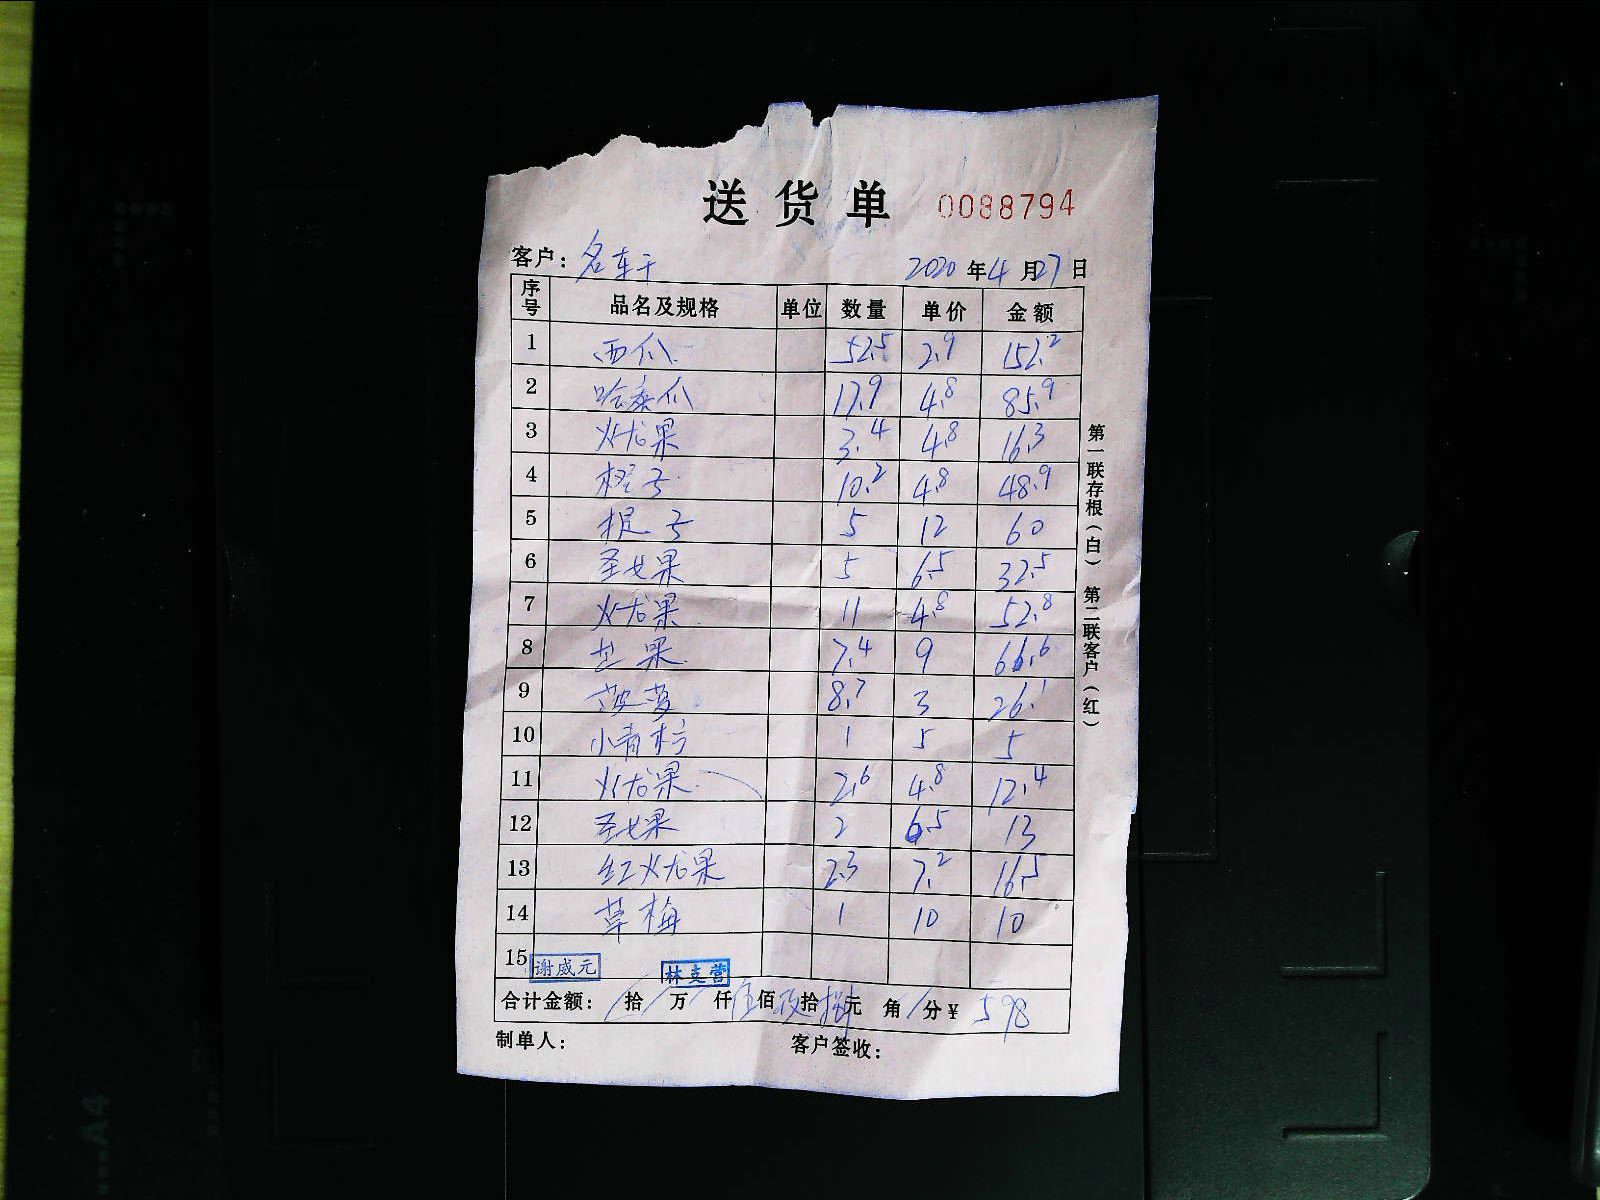 送货单 0088794
客户：名车干 2020年4月27日
序号 品名及规格 单位 数量 单价 金额
1 西瓜 52.5 2.9 152.2
2 哈密瓜 17.9 4.8 85.9
3 火龙果 3.4 4.8 16.3
4 橙子 10.2 4.8 48.9
5 提子 5 12 60
6 圣女果 5 6.5 32.5
7 火龙果 11 4.8 52.8
8 芒果 7.4 9 66.6
9 菠萝 8.7 3 26.1
10 小青柠 1 5 5
11 火龙果 2.6 4.8 12.4
12 圣女果 2 6.5 13
13 红火龙果 2.3 7.2 16.5
14 草梅 1 10 10
15
谢威元 林支营
合计金额： 拾 万 仟伍佰玖拾捌元 角 分￥ 598
制单人： 客户签收：
第一联存根（白） 第二联客户（红）
A4